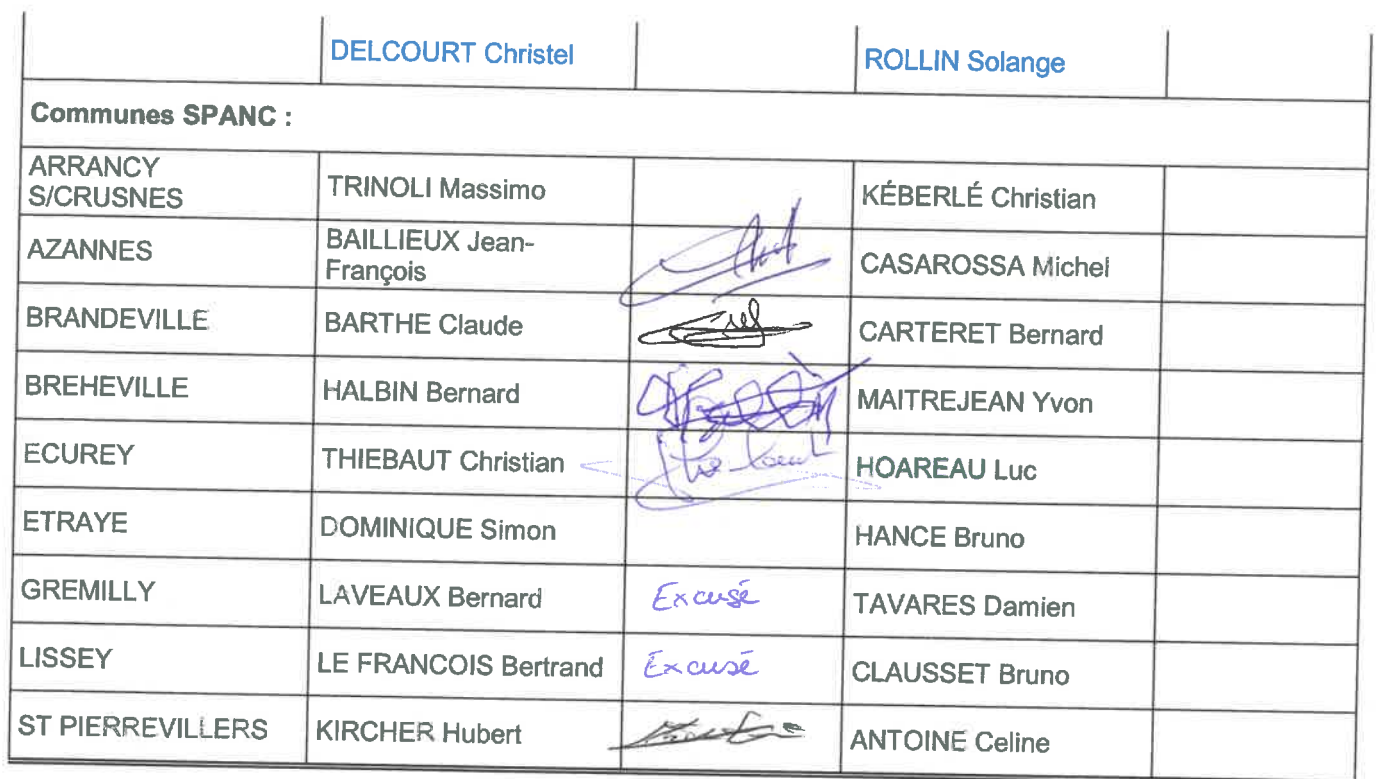 DELCOURT Christel ROLLIN Solange
Communes SPANC :
ARRANCY
S/CRUSNES
TRINOLI Massimo KÉBERLÉ Christian
AZANNES
BAILLIEUX Jean-
François
CASAROSSA Michel
BRANDEVILLE BARTHE Claude CARTERET Bernard
BREHEVILLE HALBIN Bernard MAITREJEAN Yvon
ECUREY THIEBAUT Christian HOAREAU Luc
ETRAYE DOMINIQUE Simon HANCE Bruno
GREMILLY LAVEAUX Bernard Excusé TAVARES Damien
LISSEY LE FRANCOIS Bertrand Excusé CLAUSSET Bruno
ST PIERREVILLERS KIRCHER Hubert ANTOINE Celine